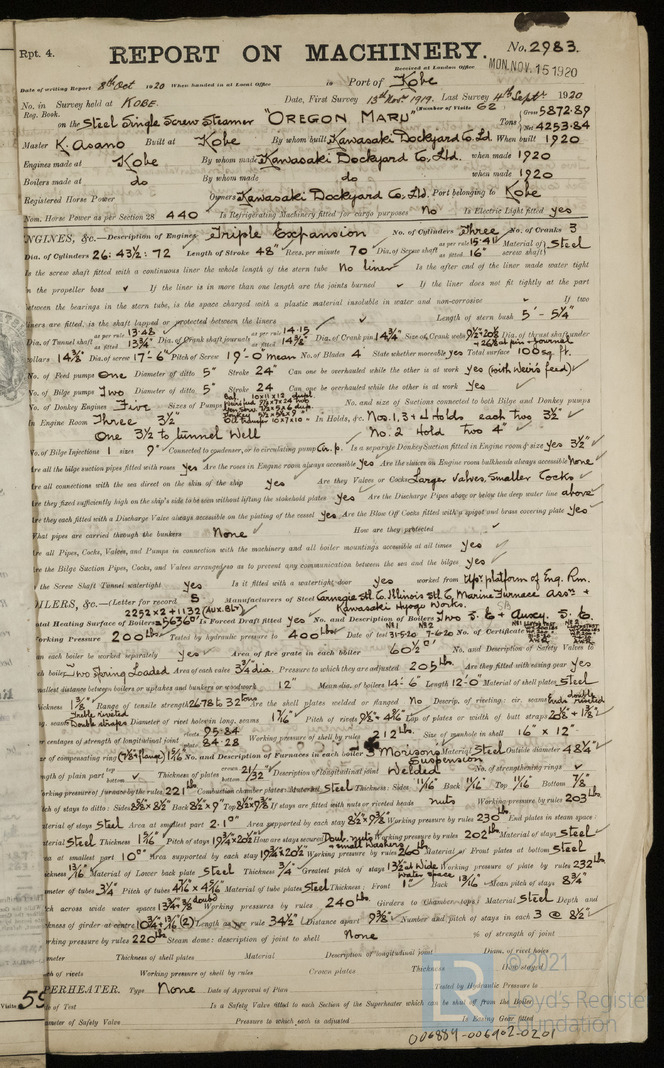 Rpt. 4.
REPORT ON MACHINERY.
No. 2983.
Received at London Office MON. NOV. 15 1920
Date of writing Report 8th Oct 1920 When handed in at Local Office 19 Port of Kobe
No. in Survey held at KOBE. Date, First Survey 13th Nov. 1919. Last Survey 4th Sept 1920
Reg. Book. (Number of Visits 62
on the Steel Single Screw Steamer "OREGON MARU" Tons { Gross 5872.89 Net 4253.84
Master K. Asano Built at Kobe By whom built Kawasaki Dockyard Co. Ld. When built 1920
Engines made at Kobe By whom made Kawasaki Dockyard Co, Ltd. when made 1920
Boilers made at do By whom made do when made 1920
Registered Horse Power Owners Kawasaki Dockyard Co, Ltd. Port belonging to Kobe
Nom. Horse Power as per Section 28 440 Is Refrigerating Machinery fitted for cargo purposes No Is Electric Light fitted yes
NGINES, &c.—Description of Engines Triple Expansion No. of Cylinders Three No. of Cranks 3
Dia. of Cylinders 26: 43½: 72 Length of Stroke 48" Revs. per minute 70 Dia. of Screw shaft as per rule 15.41 as fitted 16" Material of screw shaft) Steel
Is the screw shaft fitted with a continuous liner the whole length of the stern tube No liner Is the after end of the liner made water tight
in the propeller boss If the liner is in more than one length are the joints burned If the liner does not fit tightly at the part
between the bearings in the stern tube, is the space charged with a plastic material insoluble in water and non-corrosive If two
liners are fitted, is the shaft lapped or protected between the liners Length of stern bush 5' - 5¼"
Dia. of Tunnel shaft as per rule 13.48 as fitted 13¾" Dia. of Crank shaft journals as per rule 14.15 as fitted 14¾" Dia. of Crank pin 14¾" Size of Crank webs 9½ x 20½ Dia. of thrust shaft under
collars 14⅜" Dia. of screw 17'-6" Pitch of Screw 19'-0" mean No. of Blades 4 State whether moveable yes Total surface 100 sq. ft.
No. of Feed pumps One Diameter of ditto 5" Stroke 24" Can one be overhauled while the other is at work yes (with Weir's feed)
No. of Bilge pumps Two Diameter of ditto 5" Stroke 24 Can one be overhauled while the other is at work yes
No. of Donkey Engines Five Sizes of Pumps No. and size of Suctions connected to both Bilge and Donkey pumps
In Engine Room Three 3½" In Holds, &c. Nos. 1, 3 & 4 Holds each two 3½"
One 3½ to tunnel Well No. 2 Hold two 4"
No. of Bilge Injections 1 sizes 9" Connected to condenser, or to circulating pump Cir. p. Is a separate Donkey Suction fitted in Engine room & size yes 3½"
Are all the bilge suction pipes fitted with roses yes Are the roses in Engine room always accessible yes Are the sluices on Engine room bulkheads always accessible None
Are all connections with the sea direct on the skin of the ship yes Are they Valves or Cocks Larger Valves, Smaller Cocks
Are they fixed sufficiently high on the ship's side to be seen without lifting the stokehold plates yes Are the Discharge Pipes above or below the deep water line above
Are they each fitted with a Discharge Valve always accessible on the plating of the vessel yes Are the Blow Off Cocks fitted with a spigot and brass covering plate yes
What pipes are carried through the bunkers None How are they protected
Are all Pipes, Cocks, Valves, and Pumps in connection with the machinery and all boiler mountings accessible at all times yes
Are the Bilge Suction Pipes, Cocks, and Valves arranged so as to prevent any communication between the sea and the bilges yes
the Screw Shaft Tunnel watertight yes Is it fitted with a watertight door yes worked from Upr. platform of Eng. Rm.
OILERS, &c.—(Letter for record S Manufacturers of Steel Carnegie Stl. C. Illinois Stl. C. Marine Furnace Assn. & Kawasaki Hyogo Works.
2252 x 2 + 1132 (Aux. Blr.)
Total Heating Surface of Boilers = 5636 Is Forced Draft fitted yes No. and Description of Boilers Two S. E. & Auxy. S. E.
Working Pressure 200 lbs Tested by hydraulic pressure to 400 lbs Date of test 31-5-20 7-6-20 No. of Certificate
an each boiler be worked separately yes Area of fire grate in each boiler 60½ No. and Description of Safety Valves to
each boiler Two Spring Loaded Area of each valve 3¾ dia. Pressure to which they are adjusted 205 lbs. Are they fitted with easing gear yes
smallest distance between boilers or uptakes and bunkers or woodwork 12" Mean dia. of boilers 14'-6" Length 12'-0" Material of shell plates Steel
Thickness 1⅜" Range of tensile strength 26.78 to 32 tons Are the shell plates welded or flanged No Descrip. of riveting: cir. seams Ends double riveted
long. seams Treble riveted Double straps Diameter of rivet holes in long. seams 1 7/16" Pitch of rivets Lap of plates or width of butt straps
percentages of strength of longitudinal joint rivets 95.84 plate 84.28 Working pressure of shell by rules 212 lbs. Size of manhole in shell 16" x 12"
Size of compensating ring No. and Description of Furnaces in each boiler 3 Morisons Suspension Material Steel Outside diameter 48¼"
length of plain part Thickness of plates crown bottom 21/32" Description of longitudinal joint Welded No. of strengthening rings
working pressure of furnace by the rules 221 lbs. Combustion chamber plates: Material Steel Thickness: Sides 11/16" Back 11/16" Top 11/16" Bottom 7/8"
Working pressure by rules 203 lbs.
Material of stays Steel Area at smallest part 2.1" Area supported by each stay 8½" x 9⅜" Working pressure by rules 230 lbs End plates in steam space:
Material Steel Thickness 1 3/16" Pitch of stays 19¾" x 20½" How are stays secured Doub. nuts & small washers Working pressure by rules 202 lbs. Material of stays Steel
Area at smallest part 10" Area supported by each stay 19¾" x 20½" Working pressure by rules 260 lbs Material of Front plates at bottom Steel
Thickness 13/16" Material of Lower back plate Steel Thickness 3/4" Greatest pitch of stays 13½" at wide water space Working pressure of plate by rules 232 lbs
Diameter of tubes 3¼" Pitch of tubes Material of tube plates Steel Thickness: Front 1" Back 13/16" Mean pitch of stays 8¾"
Pitch across wide water spaces 13¾" Working pressures by rules 240 lbs Girders to Chamber tops: Material Steel Depth and
thickness of girder at centre Length as per rule 34½" Distance apart 9⅜" Number and pitch of stays in each 3 @ 8½"
Working pressure by rules 220 lbs. Steam dome: description of joint to shell None % of strength of joint
Diameter Thickness of shell plates Material Description of longitudinal joint Diam. of rivet holes
Pitch of rivets Working pressure of shell by rules Crown plates Thickness How stayed
UPERHEATER. Type None Date of Approval of Plan Tested by Hydraulic Pressure to
Date of Test Is a Safety Valve fitted to each Section of the Superheater which can be shut off from the Boiler
Diameter of Safety Valve Pressure to which each is adjusted Is Easing Gear fitted
Visits 59
© 2021
Lloyd's Register
Foundation
006884-006902-0201